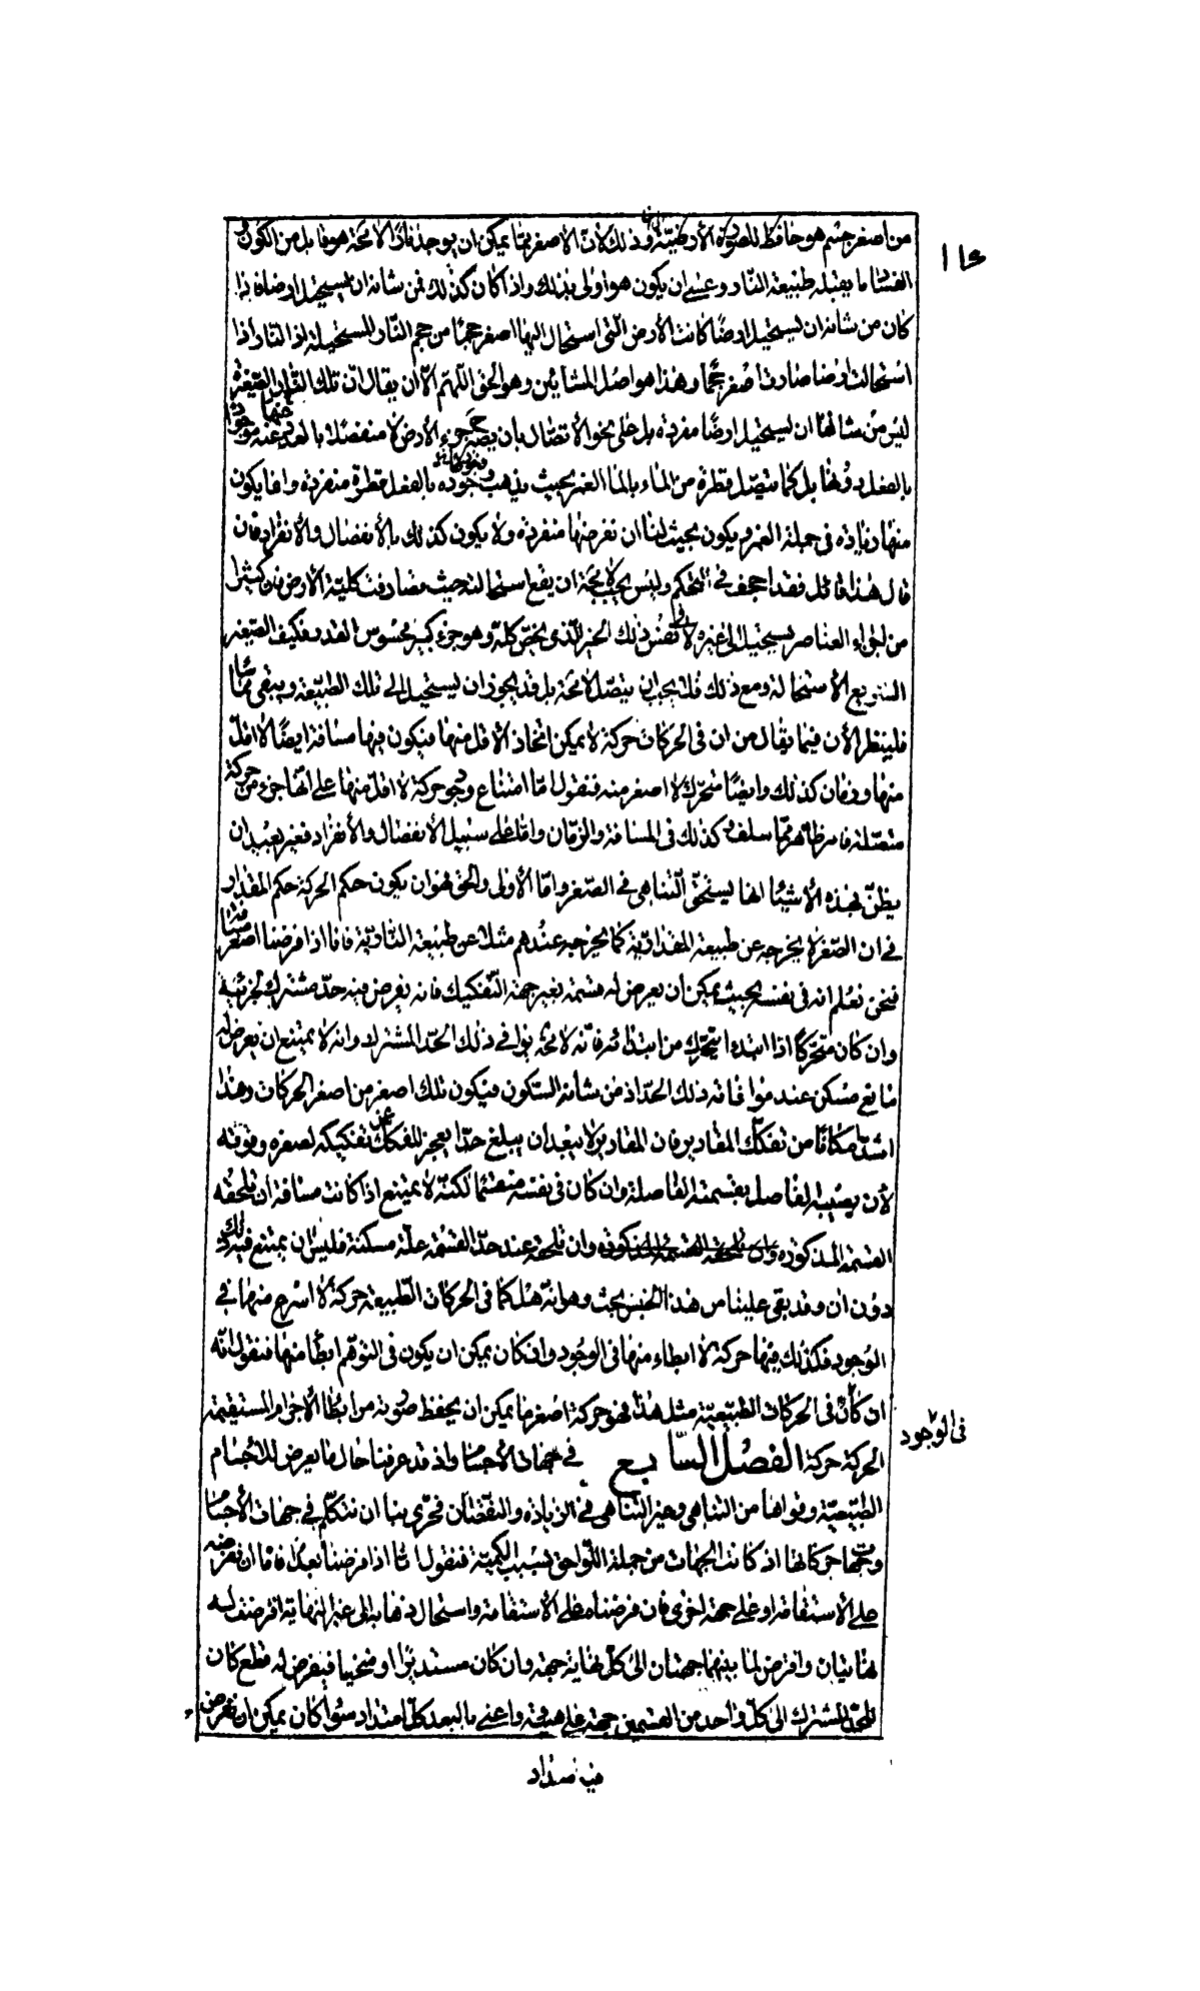 ١١٤
من اصغر جسم هو حافظ للصورة الأرضية وذلك لأن الاصغر مما يمكن ان يوجد نارا لا محة هو قابل من الكون و
الفساد ما يقبله طبيعة النار وعسى ان يكون هو اولى بذلك واذا كان كذلك فمن شانه ان يستحيل ارضا فاذا
كان من شانه ان يستحيل ارضا كانت الأرض التى استحال اليها اصغر حجما من حجم النار المستحيلة اذ النار اذا
استحالت ارضا صارت اصغر حجما وهذا هو اصل المشائين وهو الحق اللهم الا ان يقال ان تلك النار الصغيرة
ليس من شانها ان يستحيل ارضا مفردة بل على نحو الأتصال بان يصير جزء الأرض لا منفصلة بالحد عنه موجودا
بالفعل دونها بل كما يتصل قطرة من الماء بالماء الغمر بحيث يذهب وجوده بالفعل قطرة منفردة وانما يكون
منها زيادة فى جملة الغمر ويكون بحيث لنا ان نفرضها منفردة ولا يكون كذلك بالأنفصال والأنفراد فان
قال هذا قائل فقد اجحف فى التحكم وليس يجب لا محة ان يقع استحالته حيث مصادفت كلية الأرض فان كثيرا
من اجزاء العناصر يستحيل الى غيره لا فى نفس ذلك الحيز الذى يخص كله وهو جزء كبير محسوس القدر فكيف الصغير
السريع الأستحالة ومع ذلك فليس يجب ان يتصل لا محة بل قد يجوز ان يستحيل الى تلك الطبيعة ويبقى مماسا
فلينظر الأن فيما يقال من ان فى الحركات حركة لا يمكن اتخاذ الأقل منها فيكون فيها مسافة ايضا لا اقل
منها وزمان كذلك وايضا متحرك لا اصغر منه فنقول اما امتناع وجود حركة لا اقل منها على انها جزء من حركة
متصلة فامر ظاهر مما سلف و كذلك فى المسافة والزمان واما على سبيل الأنفصال والأنفراد فغير بعيد ان
يظن بهذه الأشياء انها يستحق التناهى فى الصغر واما الأولى والحق فهو ان يكون حكم الحركة حكم المقدار
فى ان الصغر لا يخرجه عن طبيعة المقدارية كما يخرجه عندهم مثلا عن طبيعة النارية فانا اذا فرضنا اصغر مسافة
فنحن نعلم انه فى نفسه بحيث يمكن ان يعرض له قسمة بغير جهة التفكيك فانه يفرض فيه حد مشترك لجزئيه
وان كان متحركا اذا ابتدا يتحرك من ابتدائه فانه لا محة يوافى ذلك الحد المشترك وانه لا يمتنع ان يعرض له
مانع مسكن عند موافاته ذلك الحد اذ من شانه السكون فيكون تلك اصغر من اصغر الحركات وهذا
اشد امكانا من تفكك المقادير فان المقادير لا يبعد ان يبلغ حدا يعجز المفكك عن تفكيكه لصغره وفوته
لأن يصيبه الفاصل بقسمته الفاصلة وان كان فى نفسه منقسما لكنه لا يمتنع اذا كانت مسافة ان تلحقه
القسمة المذكورة وان تلحقه عند حد القسمة علة مسكنة فليس ان يمتنع فيه ذلك
دون ان وقد بقى علينا من هذا الجنس بحث وهو انه هل كما فى الحركات الطبيعية حركة لا اسرع منها فى
الوجود فكذلك فيها حركة لا ابطاء منها فى الوجود وان كان يمكن ان يكون فى التوهم ابطأ منها فنقول انه
ان كان فى الحركات الطبيعية مثل هذا فهو حركة اصغر ما يمكن ان يحفظ صورته من ابطأ الأجرام المستقيمة
فى الوجود
الحركة حركة الفصل السابع فى جهات الأجسام واذ قد عرفنا حال ما يعرض للأجسام
الطبيعية وقواها من التناهى وغير التناهى فى الزيادة والنقصان فحرى بنا ان نتكلم فى جهات الأجسام
وجهات حركاتها اذ كانت الجهات من جملة اللواحق بسبب الكمية فنقول انا اذا فرضنا بعدا فاما ان نفرضه
على الأستقامة او على جهة اخرى فان فرضناه على الأستقامة واستحال ذهابه الى غير النهاية افرضنف له
نهايتان وافترض لنا بينهما جهتان الى كل نهاية جهة وان كان مستديرا او منحنيا فيفرض له قطع كان
للحد المشترك الى كل واحد من القسمين جهة على هيئة واعنى بالبعد كل امتداد سواء كان يمكن ان نفرض